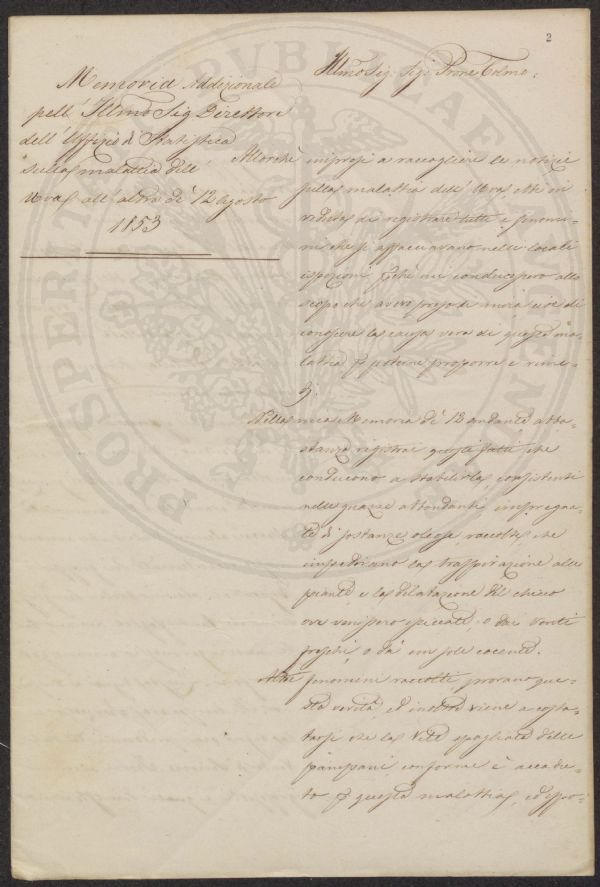 2
Memoria Addizionale
pell' Illmo Sig Direttore
dell' Uffizio di Statistica
sulla malattia dell'
Uva all' altra de' 12 Agosto
1853
Illmo Sig: Sig: Prone Colmo:
Allorchè impresi a raccogliere le notizie
sulla malattia dell' Uva, ebbi in
veduta di registrare tutti i fenome-
ni che si affacciavano nelle locali
ispezioni perchè mi conducessero allo
scopo che avevo preso di mira cioè di
conoscere la causa vera di questa ma-
lattia per poterne proporre i rime-
dj.
Nella mia Memoria de' 12 andante abba-
stanza registrai questi fatti che
conducono a stabilirla consistenti
nelle guazze abbondanti impregna-
te di sostanze oleose raccolte che
impedivano la traspirazione alle
piante e la dilatazione del chicco
ove venissero spiccate, o dai venti
freschi, o da un sole cocente.
Altri fenomeni raccolti provano que-
sta verità, ed inoltre viene a costa-
tarsi che la Vite spogliata delle
pampani conforme è accadu-
to per questa malattia, ed espo-
PROSPERITATI PVBLICAE AVGENDAE